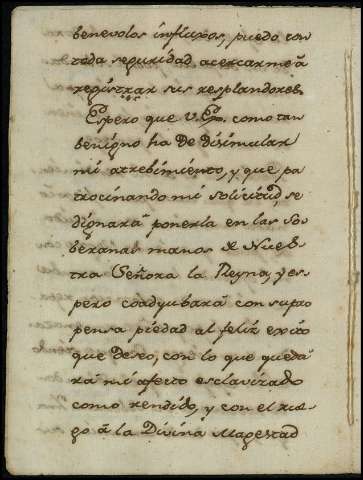 benevolos influxos, puedo con
toda seguridad acercarme â
registrar sus resplandores.
Espero que V. Ex. como tan
benigno ha de disimular
mi atrebimiento, y que pa
trocinando mi solicitud, se
dignarâ ponerla en las So
beranas manos de Nues
tra Señora la Reyna, y es
pero coadyubarâ con su pro
pensa piedad al feliz exito
que deseo, con lo que queda
râ mi afecto esclavizado
como rendido, y con el rue
go â la Divina Magestad